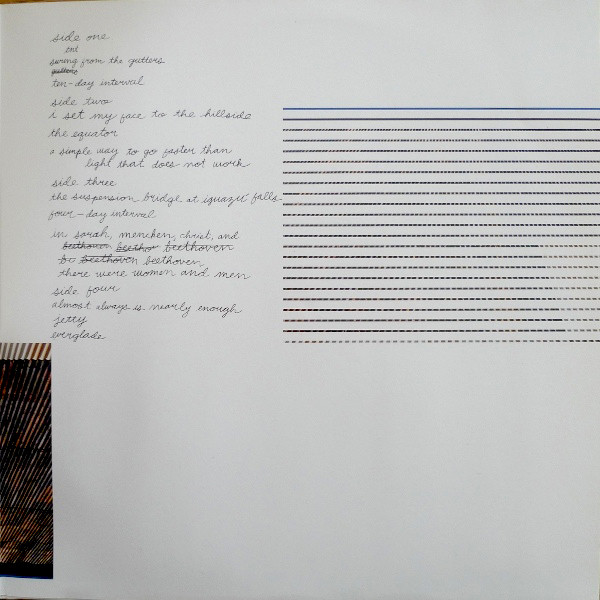 side one
tnt
swing from the gutters
gutters
ten-day interval
side two
i set my face to the hillside
the equator
a simple way to go faster than
light that does not work
side three
the suspension bridge at iguazú falls
four-day interval
in sarah, mencken, christ, and
beethoven beethov beethoven
be beethoven beethoven
there were women and men
side four
almost always is nearly enough
jetty
everglade